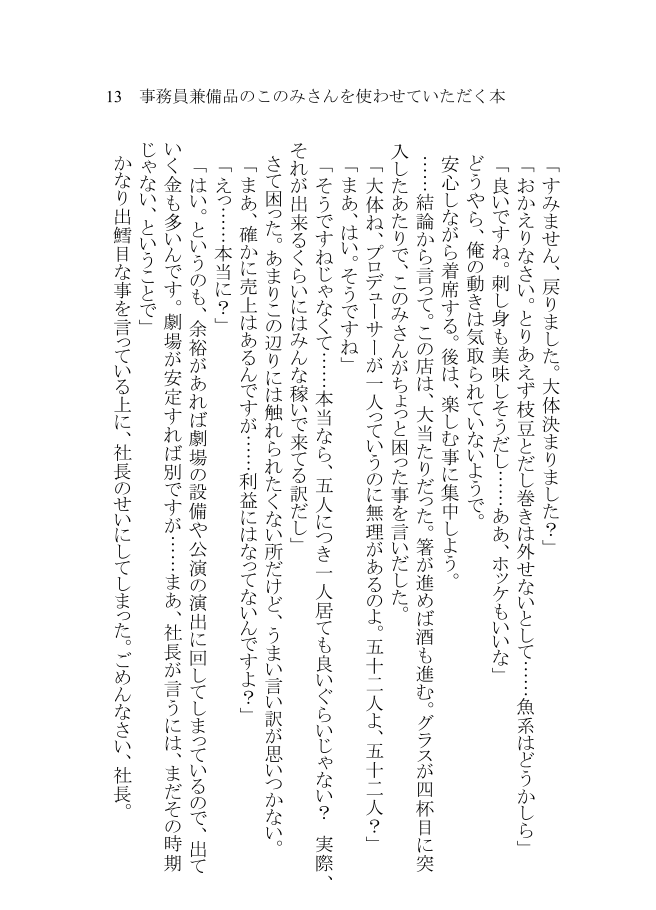 13　事務員兼備品のこのみさんを使わせていただく本
「すみません、戻りました。大体決まりました？」
「おかえりなさい。とりあえず枝豆とだし巻きは外せないとして……魚系はどうかしら」
「良いですね。刺し身も美味しそうだし……ああ、ホッケもいいな」
どうやら、俺の動きは気取られていないようで。
安心しながら着席する。後は、楽しむ事に集中しよう。
……結論から言って。この店は、大当たりだった。箸が進めば酒も進む。グラスが四杯目に突
入したあたりで、このみさんがちょっと困った事を言いだした。
「大体ね、プロデューサーが一人っていうのに無理があるのよ。五十二人よ、五十二人？」
「まあ、はい。そうですね」
「そうですねじゃなくて……本当なら、五人につき一人居ても良いぐらいじゃない？　実際、
それが出来るくらいにはみんな稼いで来てる訳だし」
さて困った。あまりこの辺りには触れられたくない所だけど、うまい言い訳が思いつかない。
「まあ、確かに売上はあるんですが……利益にはなってないんですよ？」
「えっ……本当に？」
「はい。というのも、余裕があれば劇場の設備や公演の演出に回してしまっているので、出て
いく金も多いんです。劇場が安定すれば別ですが……まあ、社長が言うには、まだその時期
じゃない、ということで」
かなり出鱈目な事を言っている上に、社長のせいにしてしまった。ごめんなさい、社長。